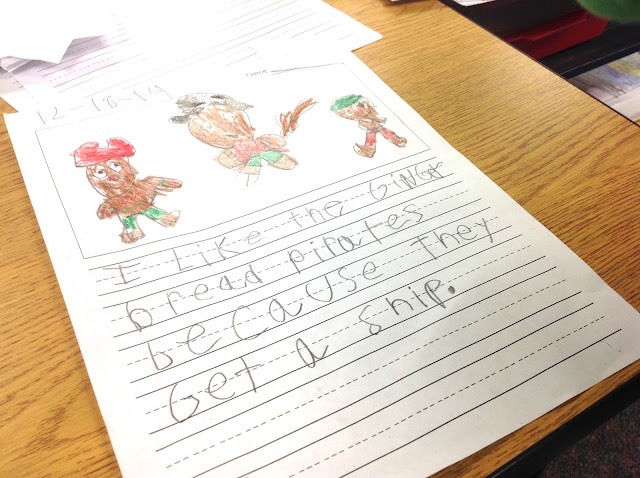 Name
12-18-14
I Like the GiNGer
bread pirates
because They
Get a ship.